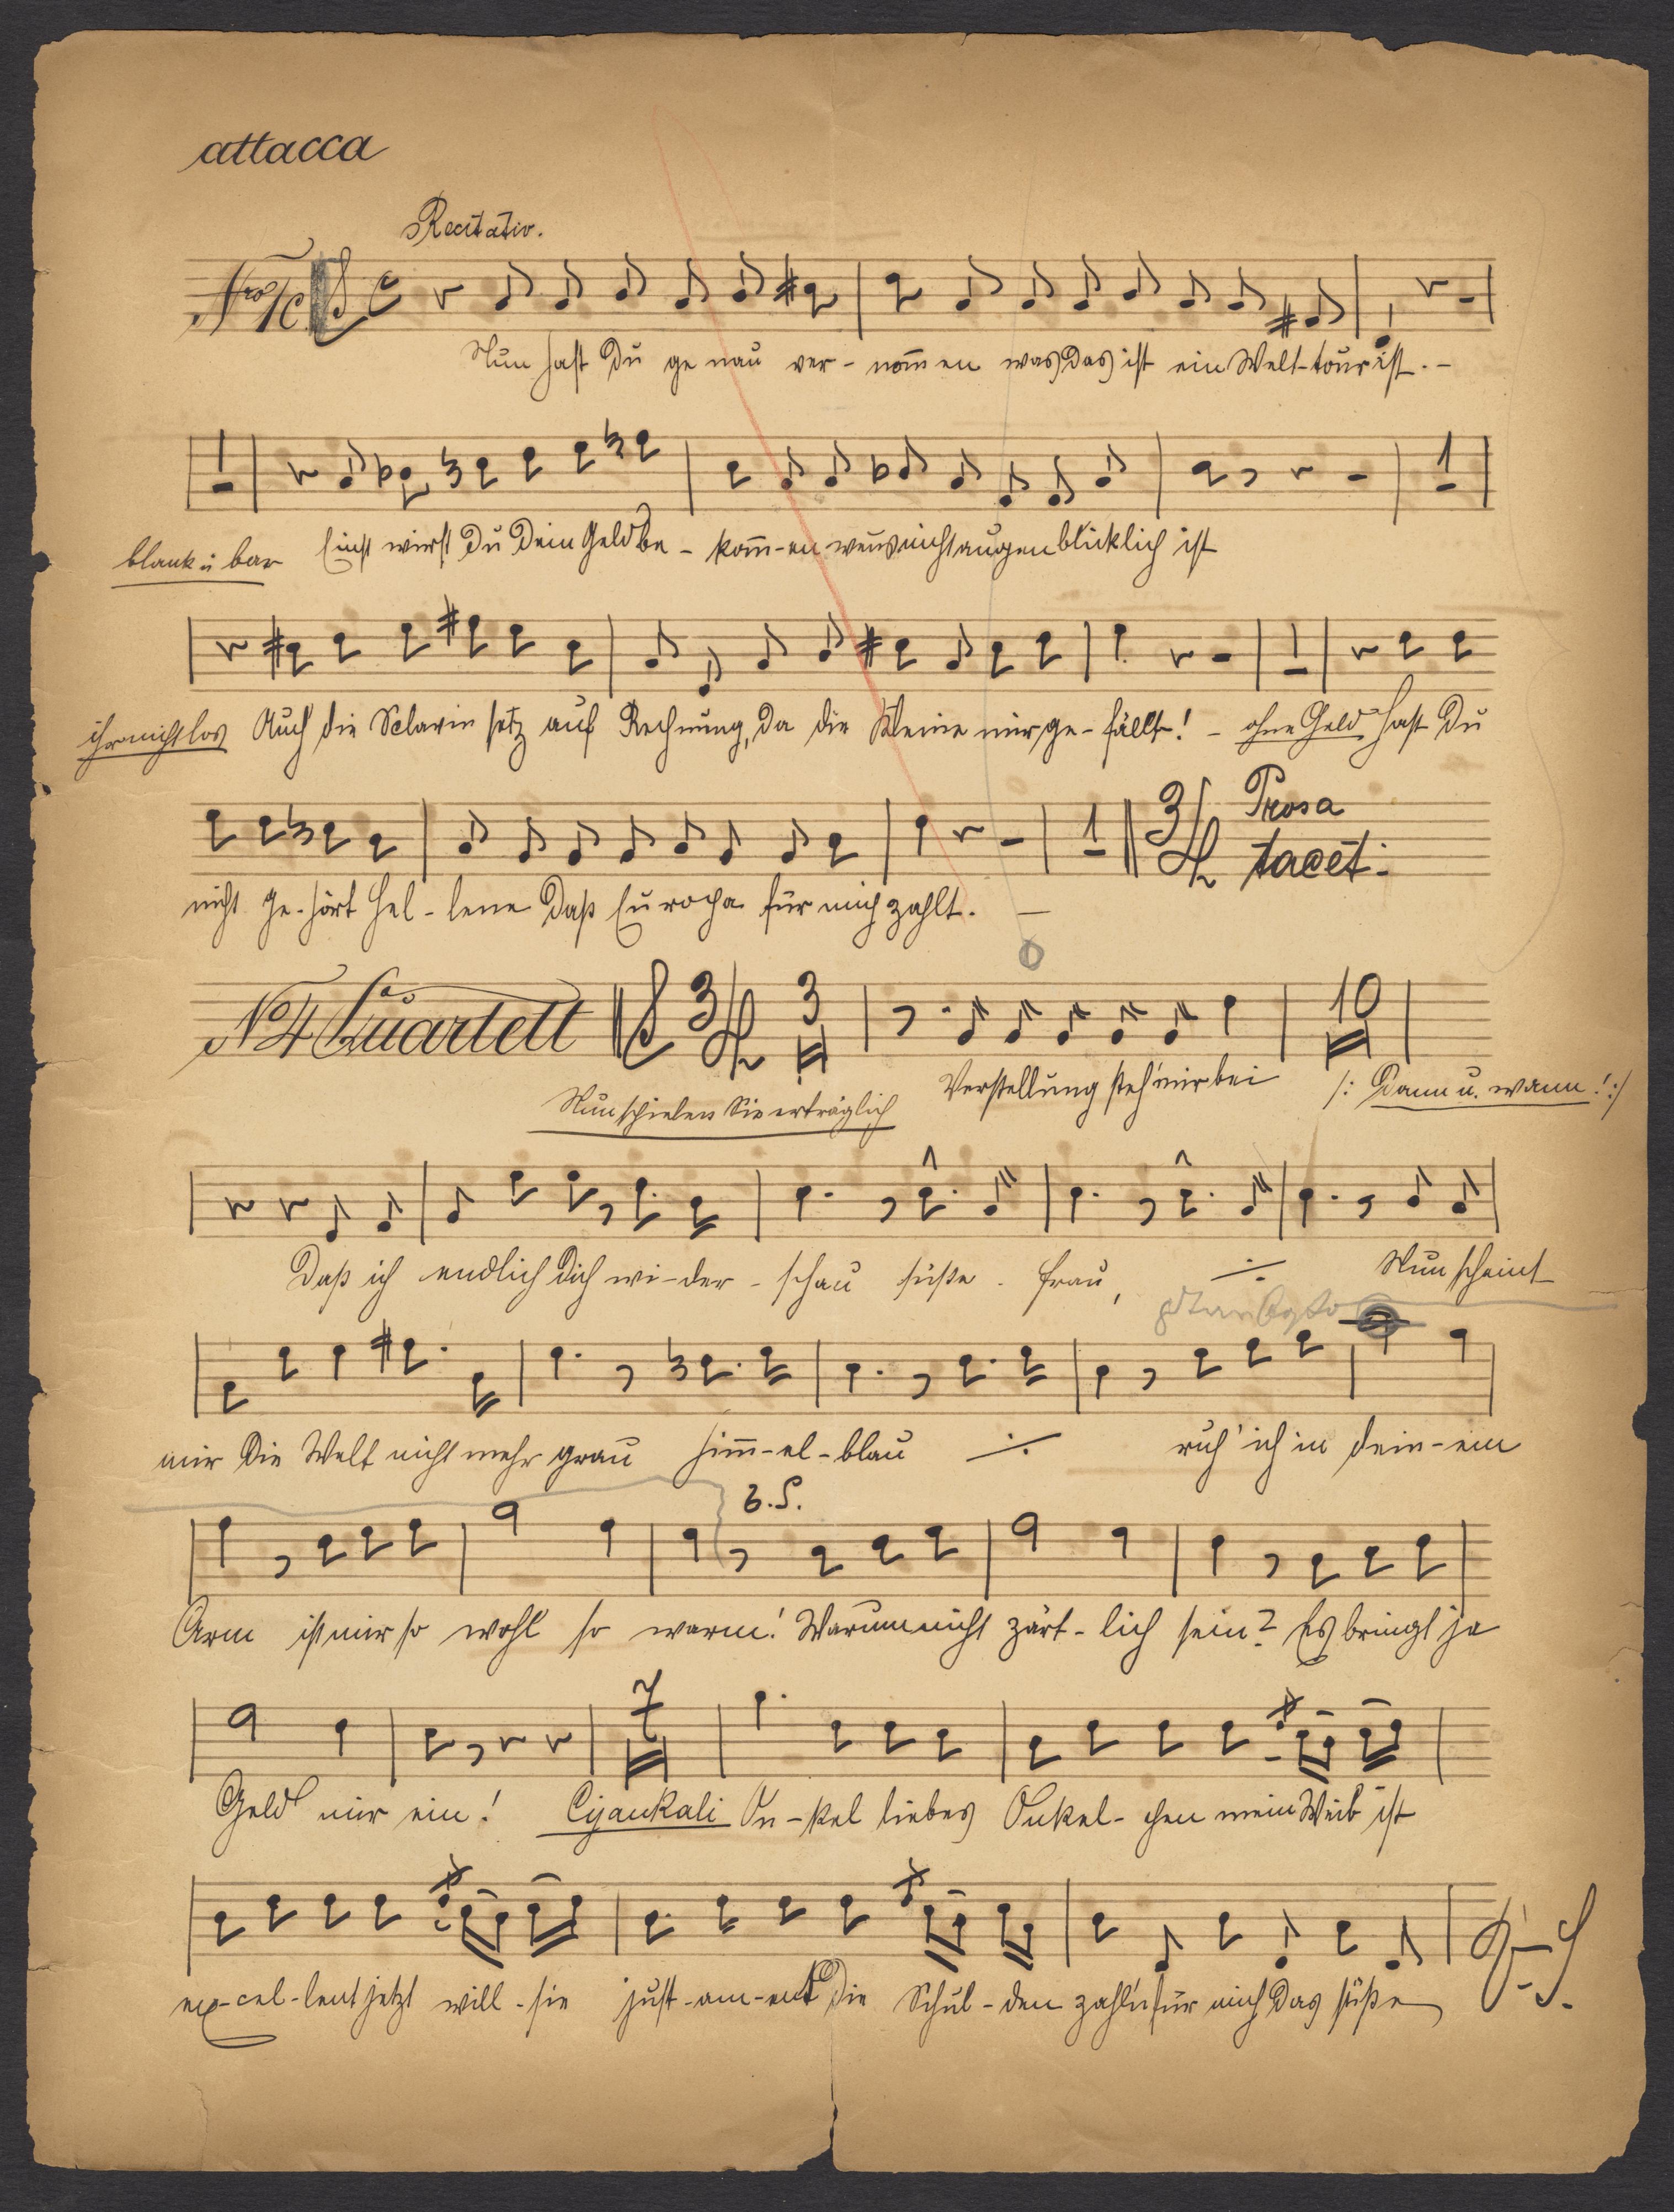 attacca
Recitativ.
Nro 1c
Nun hast du ge nau ver - nom̄ en was das ist ein Welt-tourist. -
1 1
blank ü bar Einst wirst du dein Geld be - kom̄-en wen̄s nicht augenblicklich ist
1
ihr nicht los Auch die Sclavin setz auf Rechnung, da die Kleine mir ge - fällt! - ohne Geld hast du
1 3/4 Prosa
tacet.
nicht ge-hört Hel - lene daß Europa für mich zahlt. -
No 4 Quartett 3/4 3 10
Nun schielen Sie erträglich Verstellung steh' mir bei /: Dann u. wann! :/
Daß ich endlich dich wi-der - schau süße - Frau, ·/· Nun scheint
mir die Welt nicht mehr grau him̄-el-blau ·/· ruh' ich in dein-em
z. S.
Arm ist mir so wohl so warm! Warum nicht zärt-lich sein? Es bringt ja
7
Geld mir ein! Cyankali On-kel liebes Onkel-chen mein Weib ist
ex-cel-lent jetzt will-sie just-am-ent die Schul-den zahl'n für mich das süße